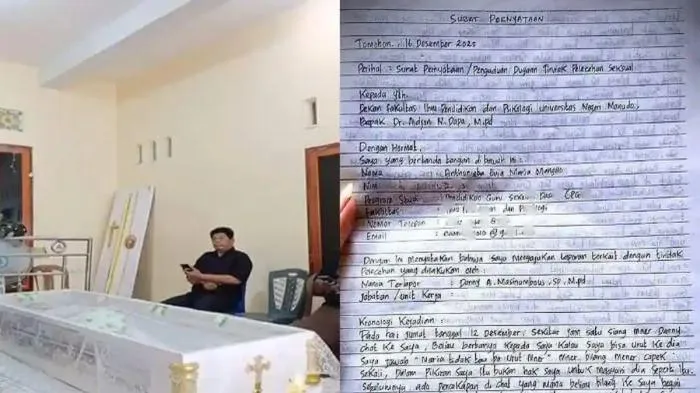 SURAT PERNYATAAN
Tomohon, 16 Desember 2025
Perihal : Surat Pernyataan / Pengaduan Dugaan Tindak Pelecehan Seksual
Kepada Yth.
Dekan Fakultas Ilmu Pendidikan dan Psikologi Universitas Negeri Manado,
Bapak Dr. Aldjon N. Dapa, M.Pd
Dengan Hormat,
Saya yang bertanda tangan di bawah ini :
Nama : Maria
Nim :
Program Studi : Pendidikan Guru
Fakultas :
Nomor Telepon :
Email :
Dengan ini menyatakan bahwa saya mengajukan laporan terkait dengan tindak
Pelecehan yang dilakukan oleh :
Nama Terlapor : Danny A. Masinambouw, SP, M.Pd
Jabatan / Unit Kerja :
Kronologi Kejadian :
Pada hari Jumat tanggal 12 Desember, sekitar jam satu siang mner Danny
chat ke saya, Beliau bertanya kepada saya kalau saya bisa urut ke dia
Saya jawab "Maria tidak tau ba urut Mner" mner bilang mener capek
sekali, dalam pikiran saya itu bukan hak saya untuk
sebelumnya ada percakapan di chat yang mana beliau bilang ke saya